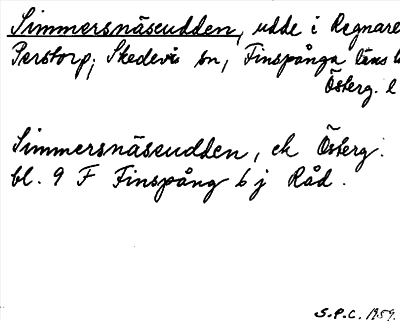 Simmersnäsudden, udde i Regnare
Perstorp, Skedevi sn, Finspånga läns
Österg. l
Simmersnäsudden, ek Österg.
bl. 9 F Finspång b j Råd.
S.P.C. 1959.